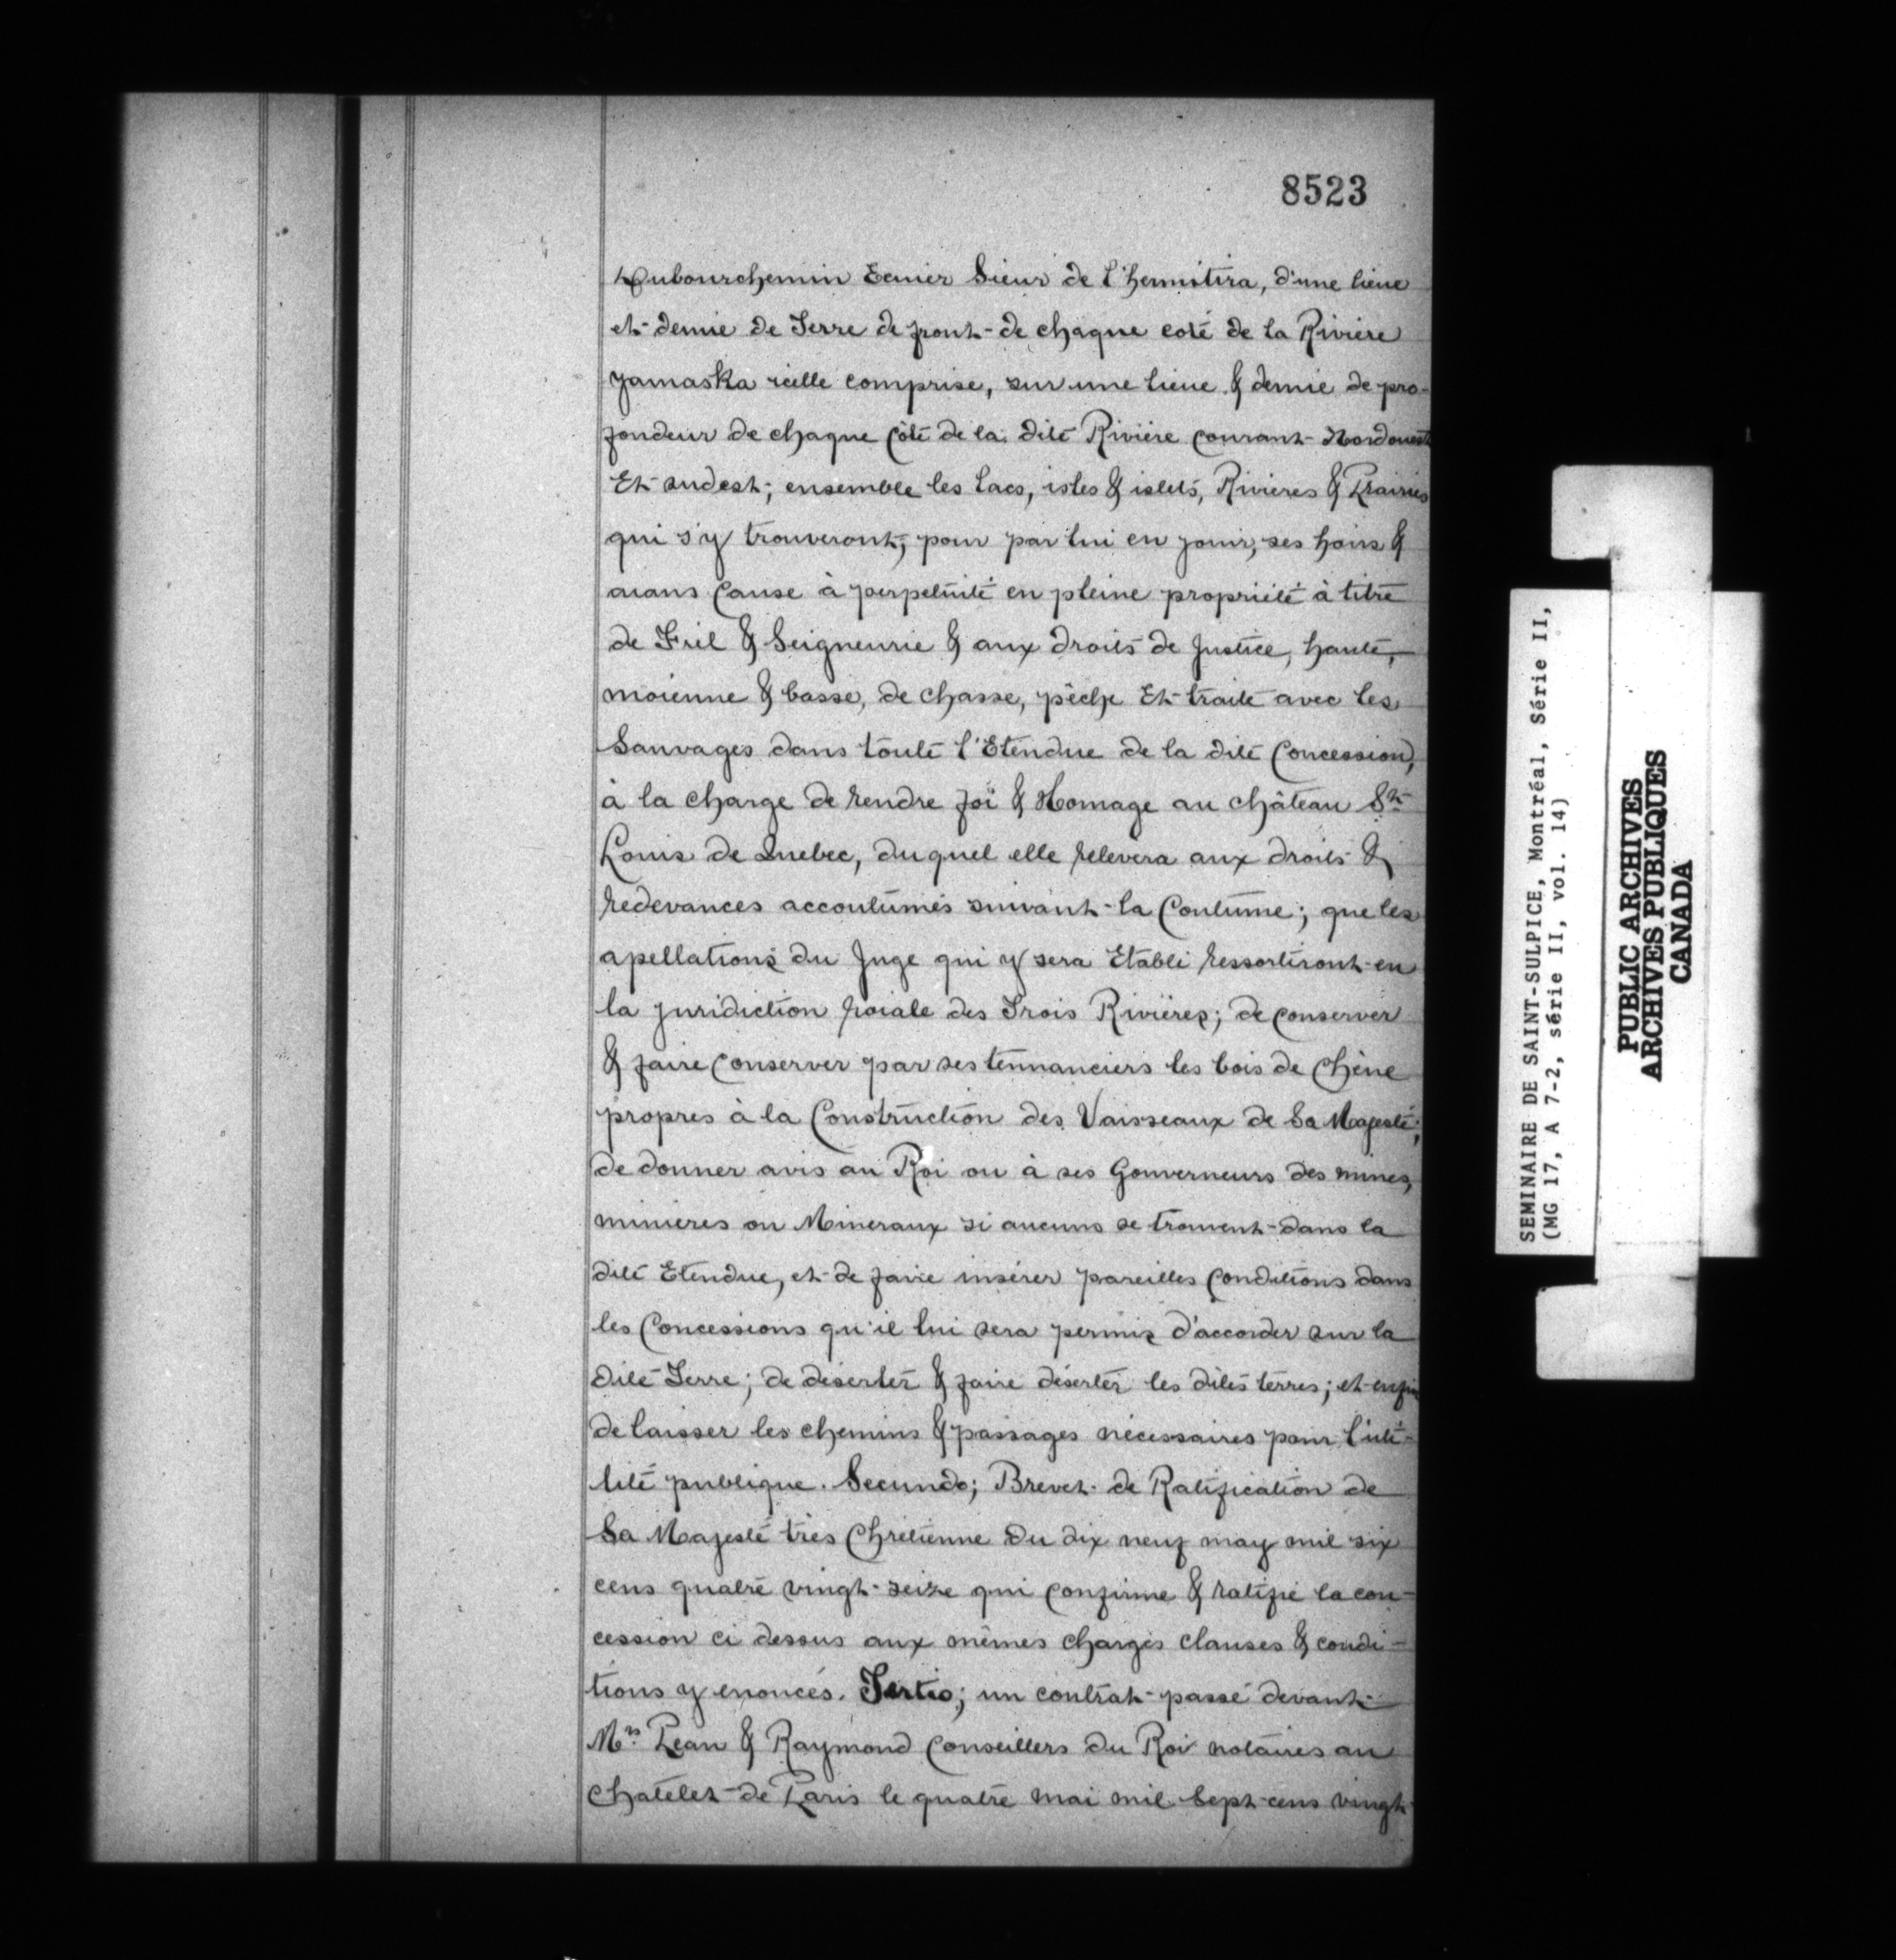 8523
Dubourchemin Ecuier Sieur de l'hermitira, d'une lieue
et demie de Terre de front de chaque coté de la Riviere
yamaska icelle comprise, sur une lieue & demie de pro-
fondeur de chaque côté de la dite Rivière courant Nordouest
Et sudest; ensemble les Lacs, isles & islets, Rivieres & Prairies
qui s'y trouveront, pour par lui en jouir, ses hoirs &
aians cause à perpetuité en pleine propriété à titre
de Fiel & Seigneurie & aux droits de Justice, haute,
moienne & basse, de chasse, pêche Et traite avec les
Sauvages dans toute l'Etendue de la dite Concession,
à la charge de rendre foi & Homage au château St
Louis de Quebec, duquel elle relevera aux droits &
redevances accoutumés suivant la Coutume; que les
apellations du Juge qui y sera Etabli ressortiront en
la juridiction roiale des Trois Rivières; de conserver
& faire conserver par ses tennanciers les bois de Chêne
propres à la Construction des Vaisseaux de Sa Majesté;
de donner avis au Roi ou à ses Gouverneurs des mines,
minieres ou Mineraux si aucuns se trouvent dans la
dite Etendue, et de faire insérer pareilles conditions dans
les Concessions qu'il lui sera permis d'accorder sur la
dite Terre; de déserter & faire déserter les dites terres; et enfin
de laisser les chemins & passages nécessaires pour l'uti-
lité publique. Secundo; Brevet de Ratification de
Sa Majesté très Chrétienne du dix neuf may mil six
cens quatre vingt seize qui confirme & ratifie la con-
cession ci dessus aux mêmes charges clauses & condi-
tions y enoncés. Tertio; un contrat passé devant
Mrs Pean & Raymond Conseillers du Roi notaires au
Chatelet de Paris le quatre mai mil sept cens vingt
SEMINAIRE DE SAINT-SULPICE, Montréal, Série II,
(MG 17, A 7-2, série II, vol. 14)
PUBLIC ARCHIVES
ARCHIVES PUBLIQUES
CANADA